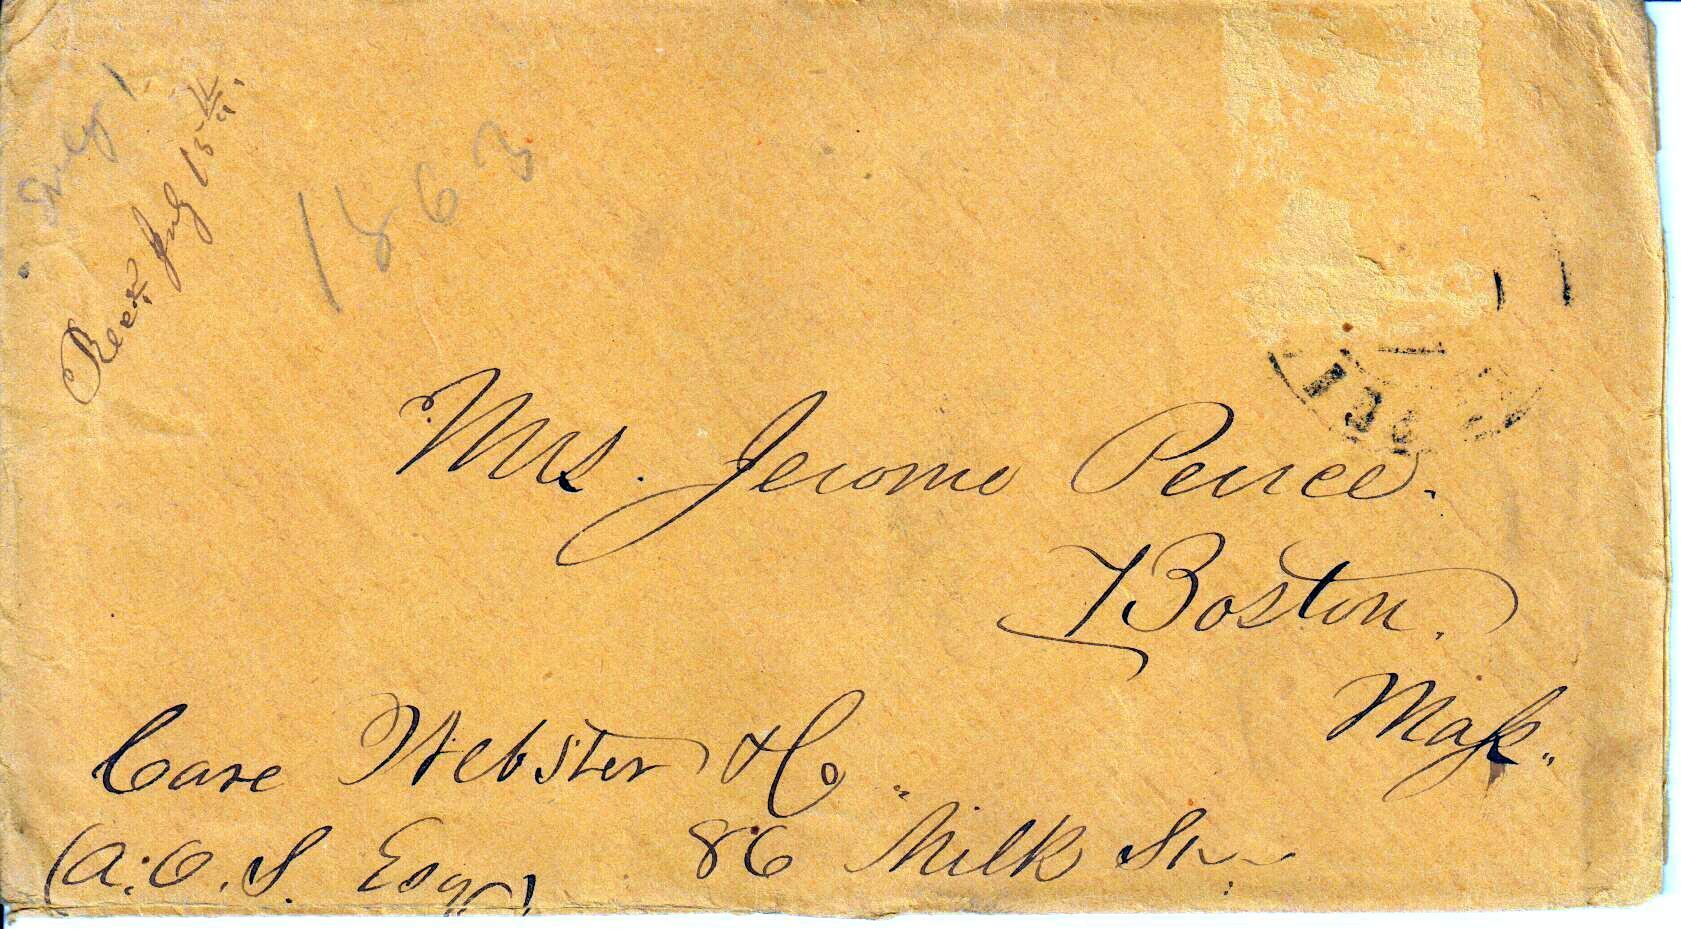 July 1
Recd. July 15th
1863
Mrs. Jerome Peirce.
Boston.
Mass.
Care Webster & Co
86 Milk St.
(A. O. S. Esq)